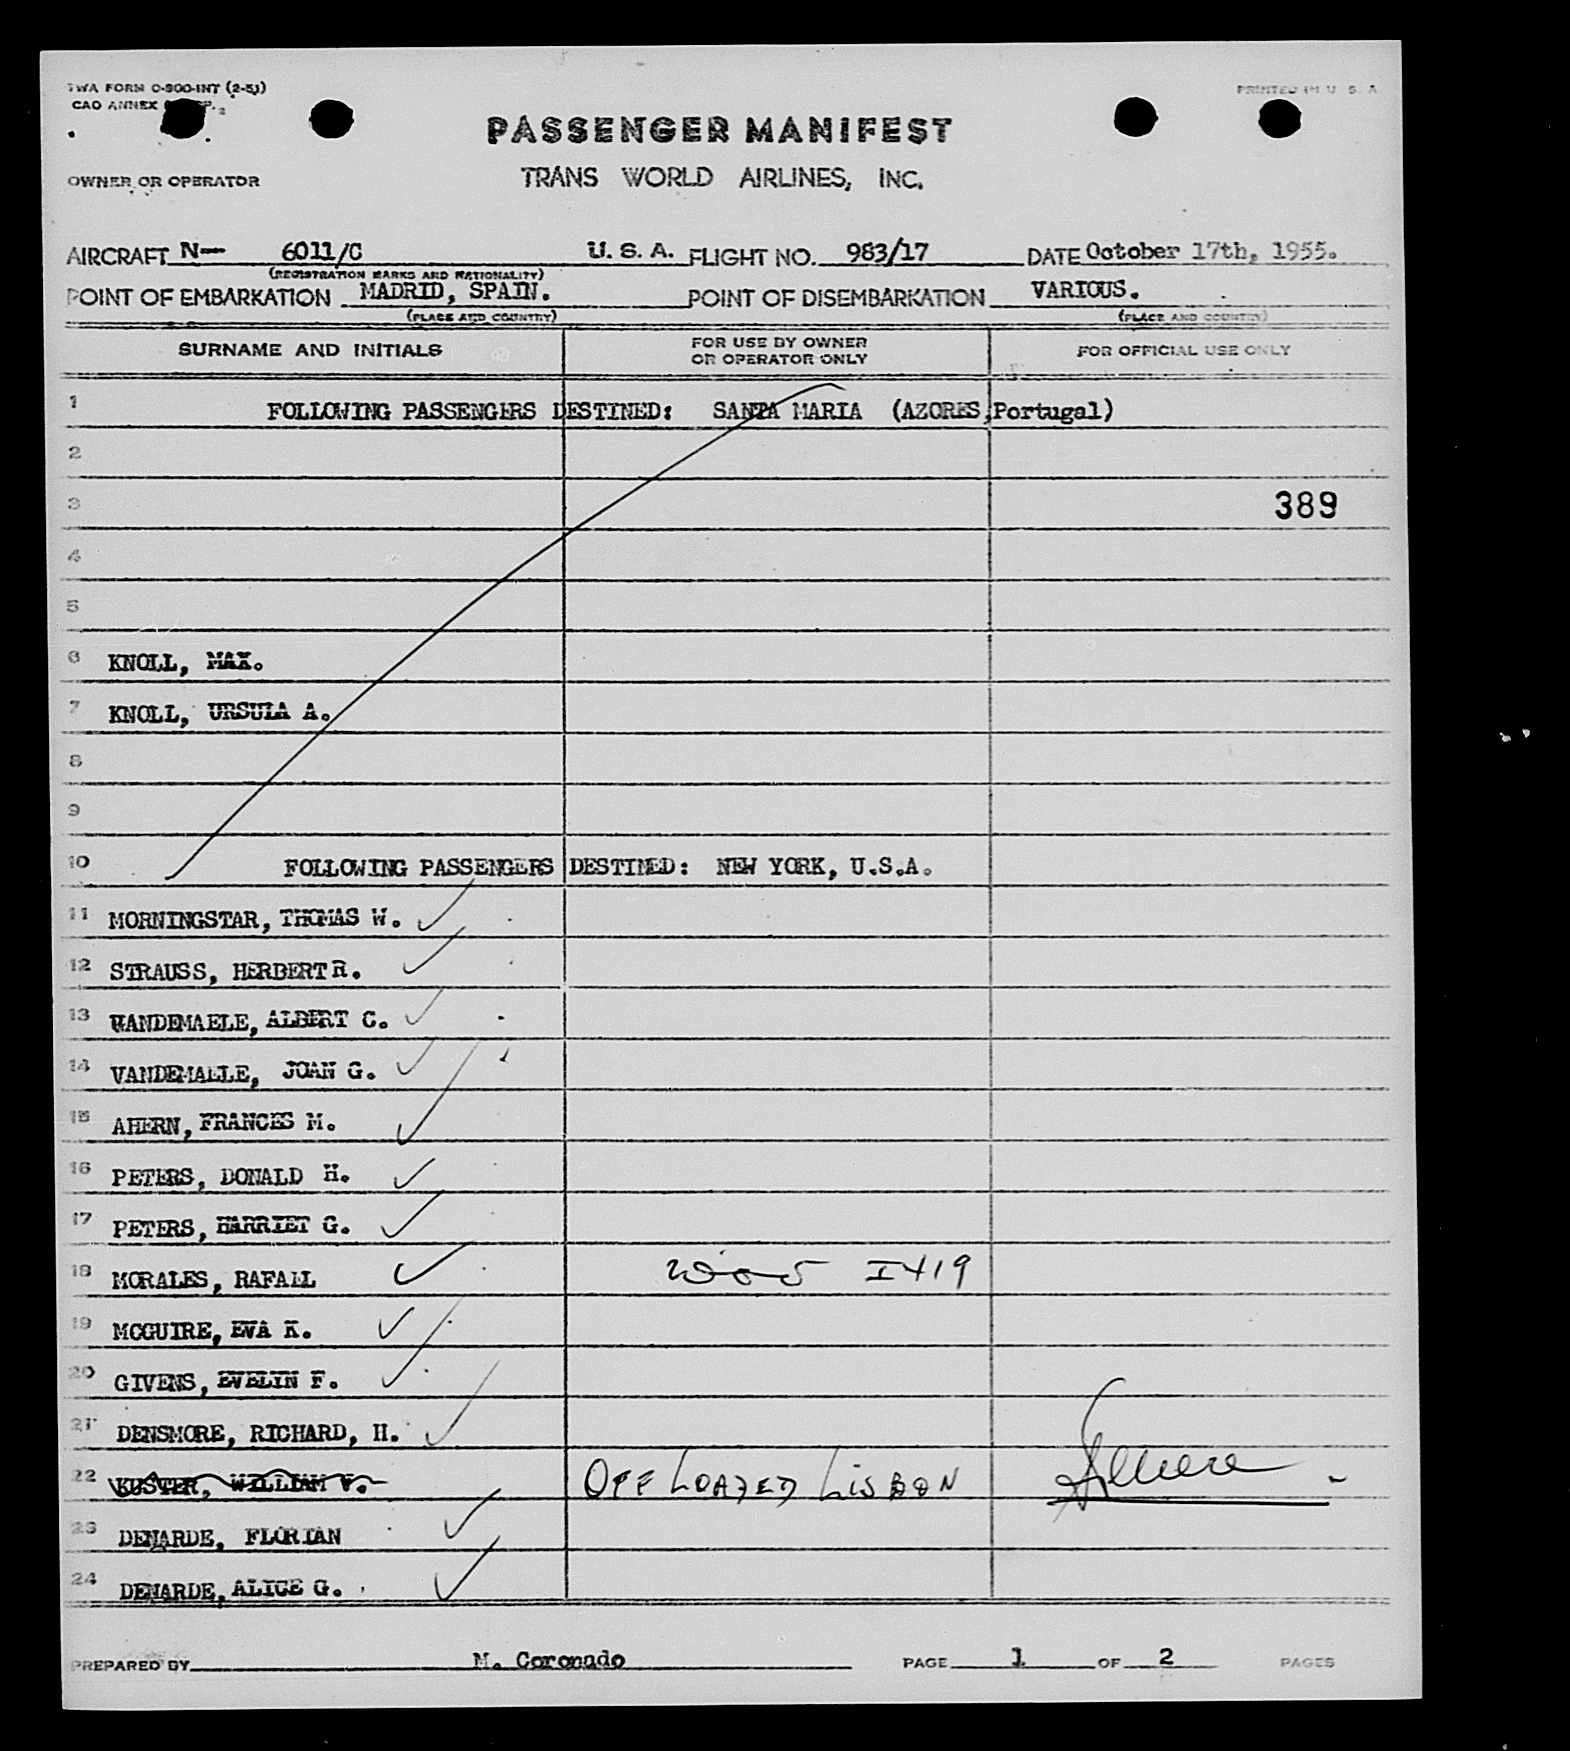 TWA FORM O-900-INT (2-51)
CAO ANNEX
PRINTED IN U. S. A.
PASSENGER MANIFEST
OWNER OR OPERATOR TRANS WORLD AIRLINES, INC.
AIRCRAFT N— 6011/C U. S. A. FLIGHT NO. 983/17 DATE October 17th, 1955.
(REGISTRATION MARKS AND NATIONALITY)
POINT OF EMBARKATION MADRID, SPAIN. POINT OF DISEMBARKATION VARIOUS.
(PLACE AND COUNTRY) (PLACE AND COUNTRY)
SURNAME AND INITIALS FOR USE BY OWNER OR OPERATOR ONLY FOR OFFICIAL USE ONLY
1 FOLLOWING PASSENGERS DESTINED: SANTA MARIA (AZORES,Portugal)
2
3 389
4
5
6 KNOLL, MAX.
7 KNOLL, URSULA A.
8
9
10 FOLLOWING PASSENGERS DESTINED: NEW YORK, U.S.A.
11 MORNINGSTAR, THOMAS W.
12 STRAUSS, HERBERT R.
13 VANDEMAELE, ALBERT C.
14 VANDEMAELE, JOAN G.
15 AHERN, FRANCES M.
16 PETERS, DONALD H.
17 PETERS, HARRIET G.
18 MORALES, RAFAEL I419
19 MCGUIRE, EVA K.
20 GIVENS, EVELIN F.
21 DENSMORE, RICHARD, H.
22 KUSTER, WILLIAM V. OFF LOADED LISBON
23 DENARDE, FLORIAN
24 DENARDE, ALICE G.
PREPARED BY M. Coronado PAGE 1 OF 2 PAGES